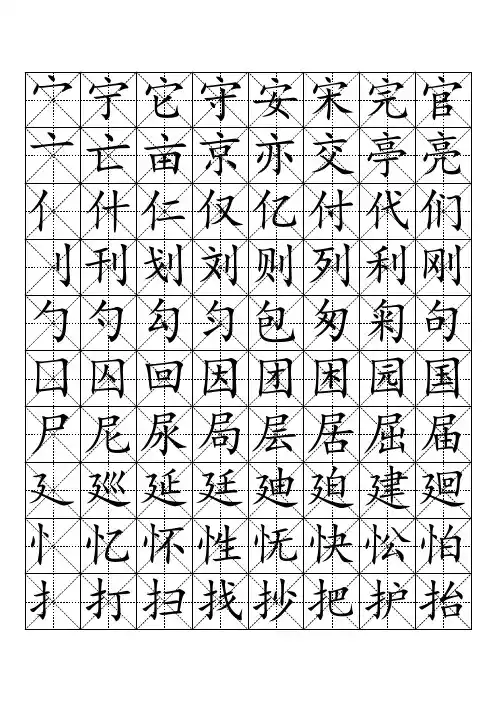 宀宁它守安宋完官
亠亡亩京亦交亭亮
亻什仁仅亿付代们
刂刊划刘则列利刚
勹勺勾匀包匆匊句
囗囚回因团困园国
尸尼尿局层居屈届
廴巡延廷廸廹建廻
忄忆怀性怃快忪怕
扌打扫找抄把护抬